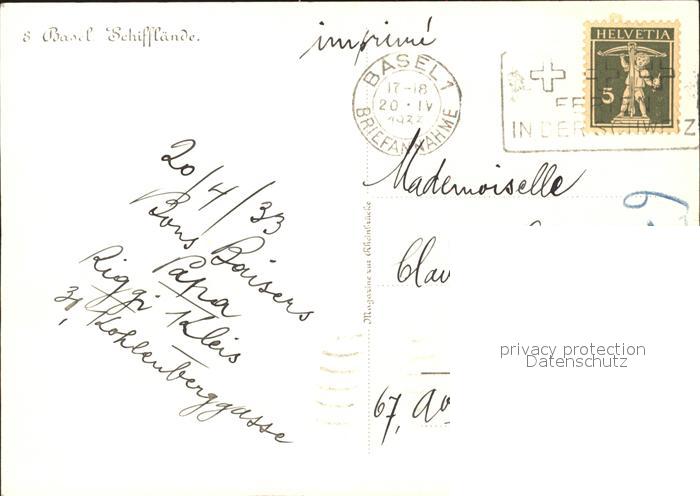 8 Basel Schifflände.
imprimé
BASEL 1
17-18
20·IV
1933
BRIEFANNAHME
HELVETIA
5
FERIEN
IN DER SCHWEIZ
Mademoiselle
Clav
67, Av
Magazine zur Rheinbrücke
20/4/33
Bons Baisers
Papa
Riggi Kleis
31, Kohlenberggasse
privacy protection
Datenschutz